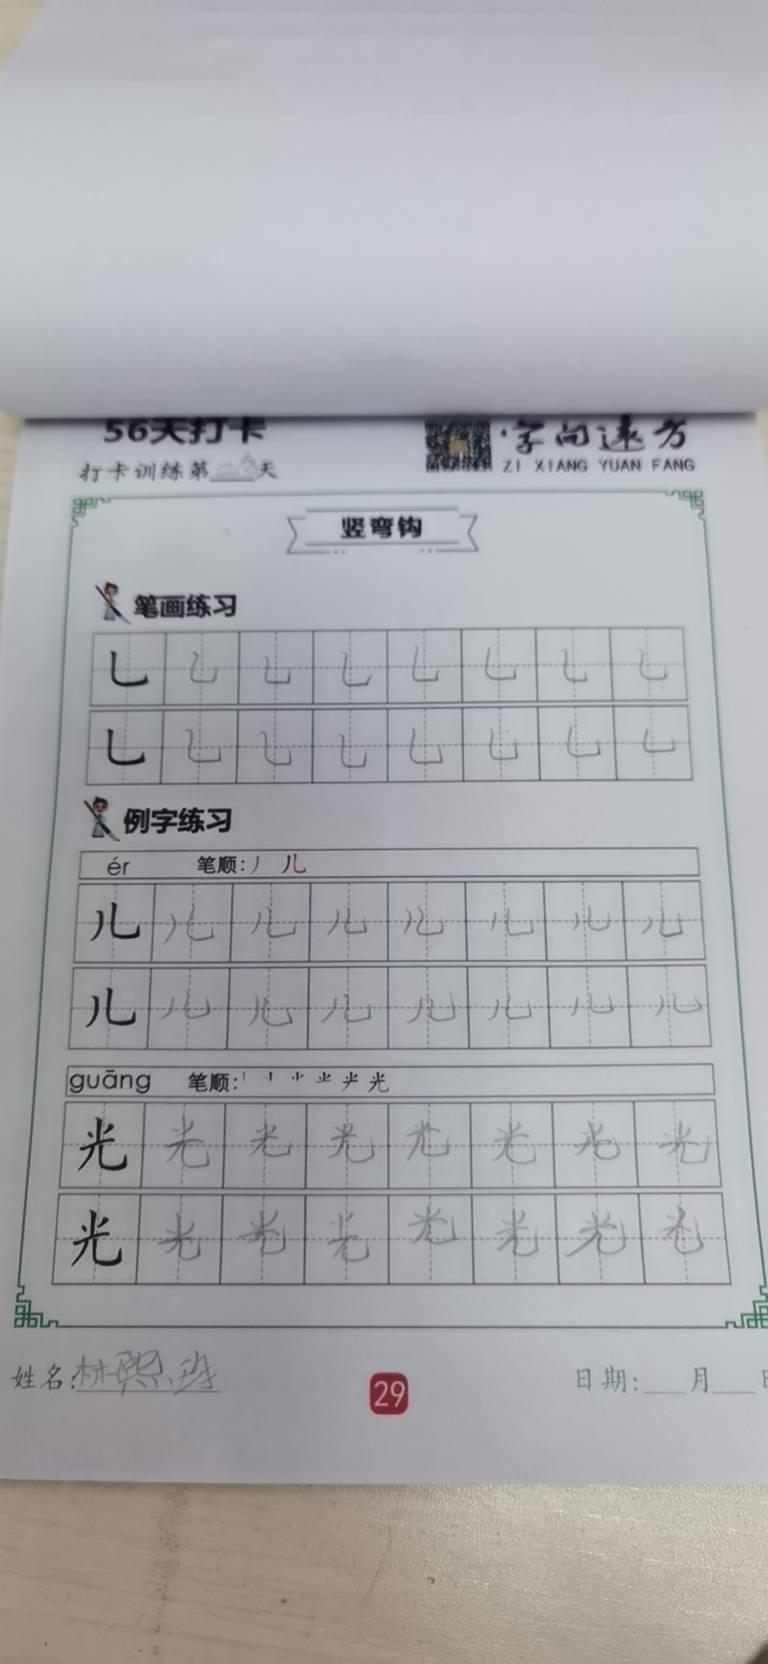 56天打卡
字向远方
打卡训练第二八天
ZI XIANG YUAN FANG
竖弯钩
笔画练习
乚 乚 乚 乚 乚 乚 乚 乚
乚 乚 乚 乚 乚 乚 乚 乚
例字练习
ér 笔顺:丿 儿
儿 儿 儿 儿 儿 儿 儿 儿
儿 儿 儿 儿 儿 儿 儿 儿
guāng 笔顺: 光
光 光 光 光 光 光 光 光
光 光 光 光 光 光 光 光
姓名:林熙班
29
日期:___月___日